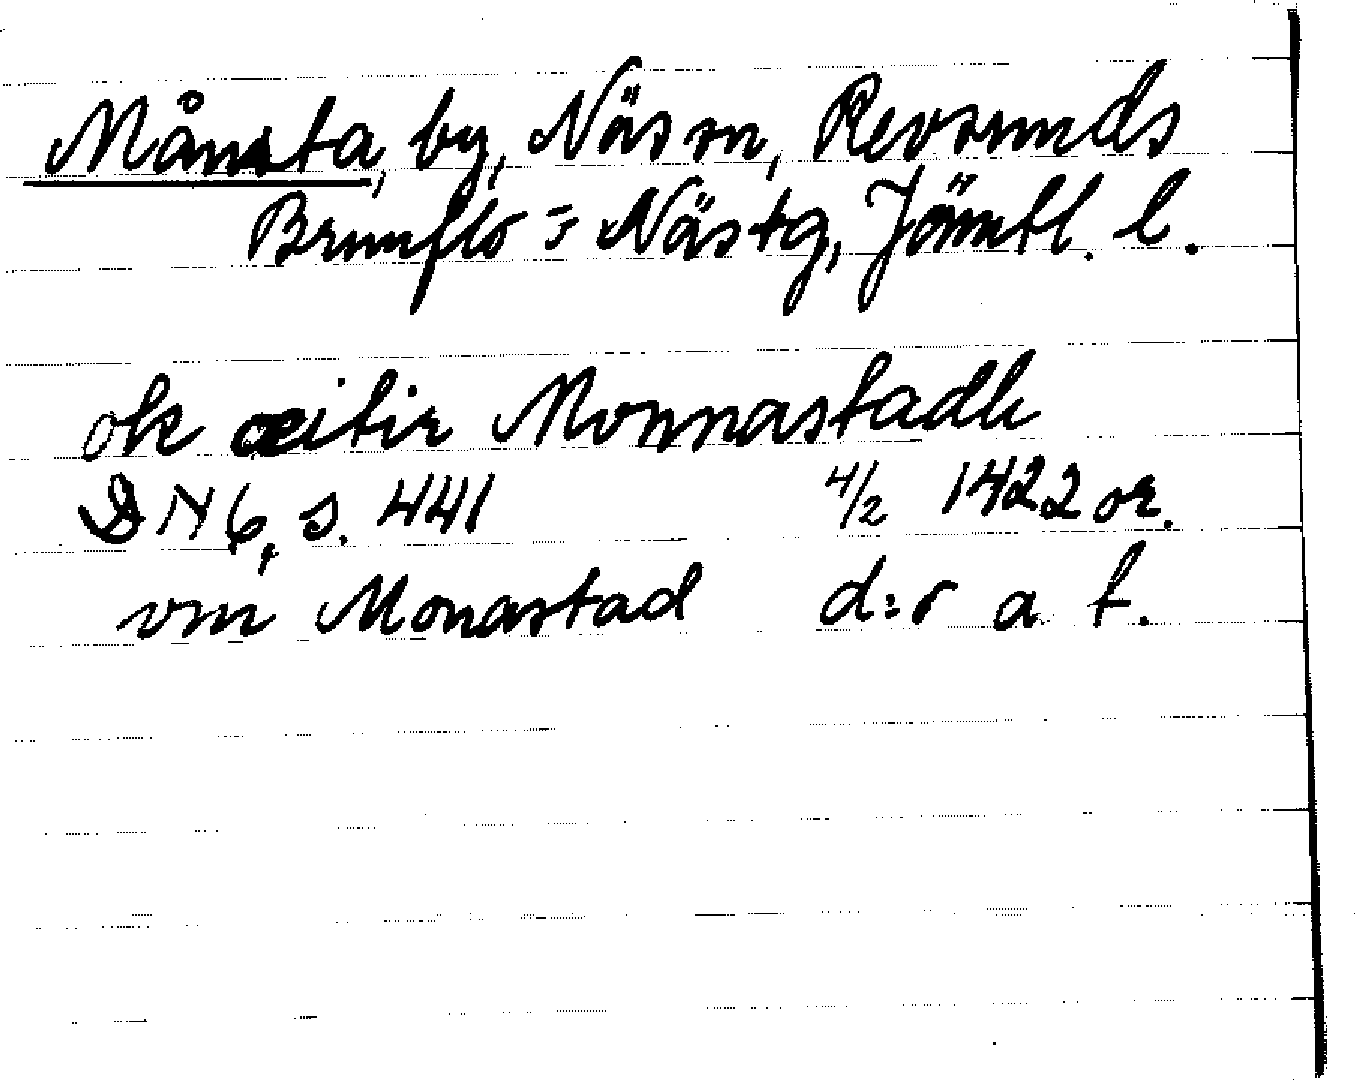 Månsta, by, Näs sn, Revsunds
Brunflo = Näs tg, Jämtl. l.
ok æitir Monnastadh
DN 6, s. 441 4/2 1422 or.
om Monastad d:o a t.